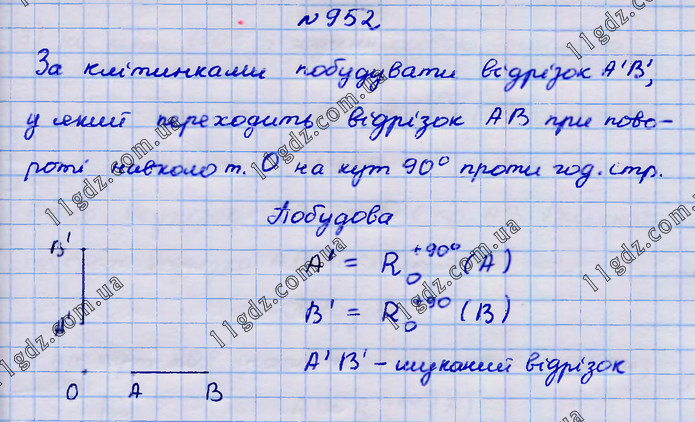 №952
За клітинками побудувати відрізок A'B',
у який переходить відрізок AB при пово-
роті навколо т. O на кут 90° проти год. стр.
Побудова
B'
A' = R_O^{+90°} (A)
B' = R_O^{+90} (B)
A'
A'B' – шуканий відрізок
O A B
11gdz.com.ua
11gdz.com.ua
11gdz.com.ua
11gdz.com.ua
11gdz.com.ua
11gdz.com.ua
11gdz.com.ua
11gdz.com.ua